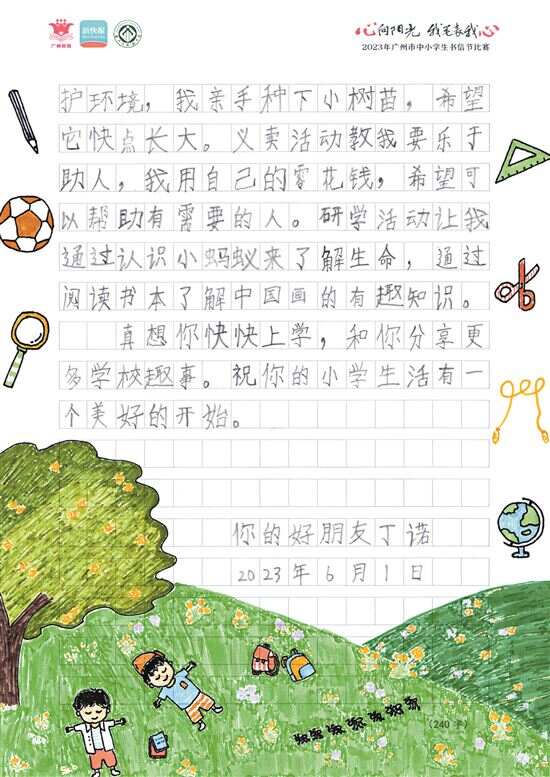 广州教育
新快报
心向阳光 我笔表我心
2023年广州市中小学生书信节比赛
护环境，我亲手种下小树苗，希望
它快点长大。义卖活动教我要乐于
助人，我用自己的零花钱，希望可
以帮助有需要的人。研学活动让我
通过认识小蚂蚁来了解生命，通过
阅读书本了解中国画的有趣知识。
真想你快快上学，和你分享更
多学校趣事。祝你的小学生活有一
个美好的开始。
你的好朋友丁诺
2023年6月1日
(240 字)